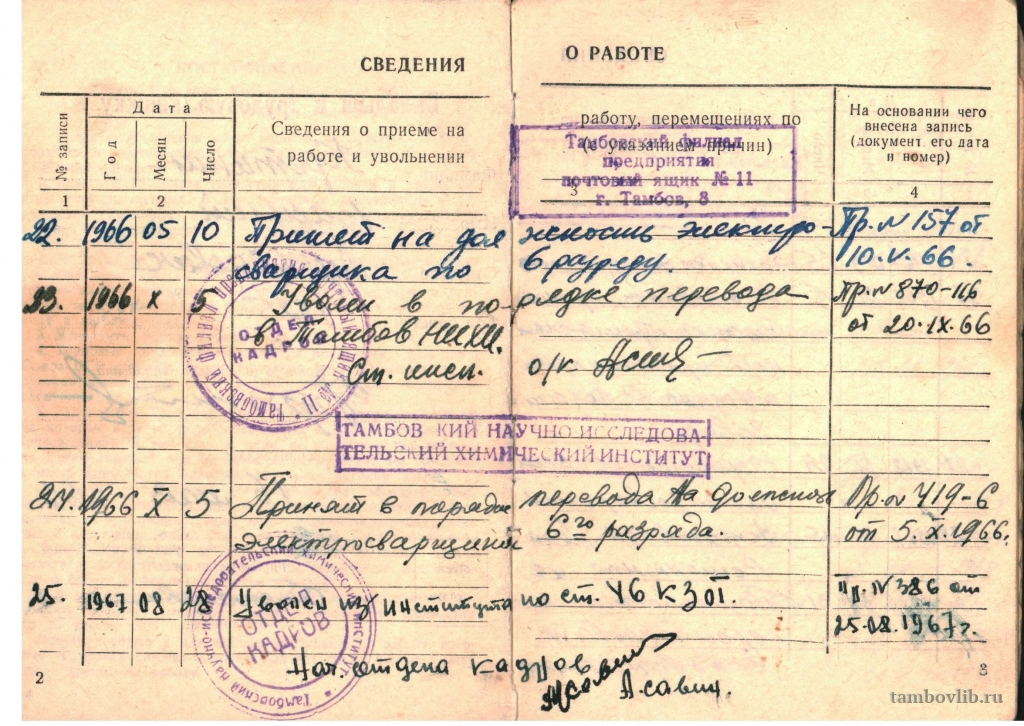 СВЕДЕНИЯ О РАБОТЕ
№ записи
Дата
Год
Месяц
Число
Сведения о приеме на
работе и увольнении
работу, перемещениях по
(с указанием причин)
На основании чего
внесена запись
(документ его дата
и номер)
1 2 3 4
Тамбовский филиал
предприятия
почтовый ящик № 11
г. Тамбов, 8
22. 1966 05 10 Принят на должность электро- Пр. № 157 от
сварщика по 6 разряду. 10.V.66.
23. 1966 X 5 Уволен в порядке перевода Пр. № 870-
в Тамбов НИХИ. от 20.IX.66
Ст. инсп. о/к
ОТДЕЛ
КАДРОВ
ТАМБОВ КИЙ НАУЧНО ИССЛЕДОВА-
ТЕЛЬСКИЙ ХИМИЧЕСКИЙ ИНСТИТУТ
24. 1966 X 5 Принят в порядке перевода на должность Пр. № 419-6
электросварщика 6го разряда. от 5.X.1966г.
25. 1967 08 28 Уволен из института по ст. 46 КЗОТ. Пр. № 386 от
25.08.1967г.
Нач. отдела кадров
Тамбовский научно-исследовательский химический институт
ОТДЕЛ
КАДРОВ
2
3
tambovlib.ru